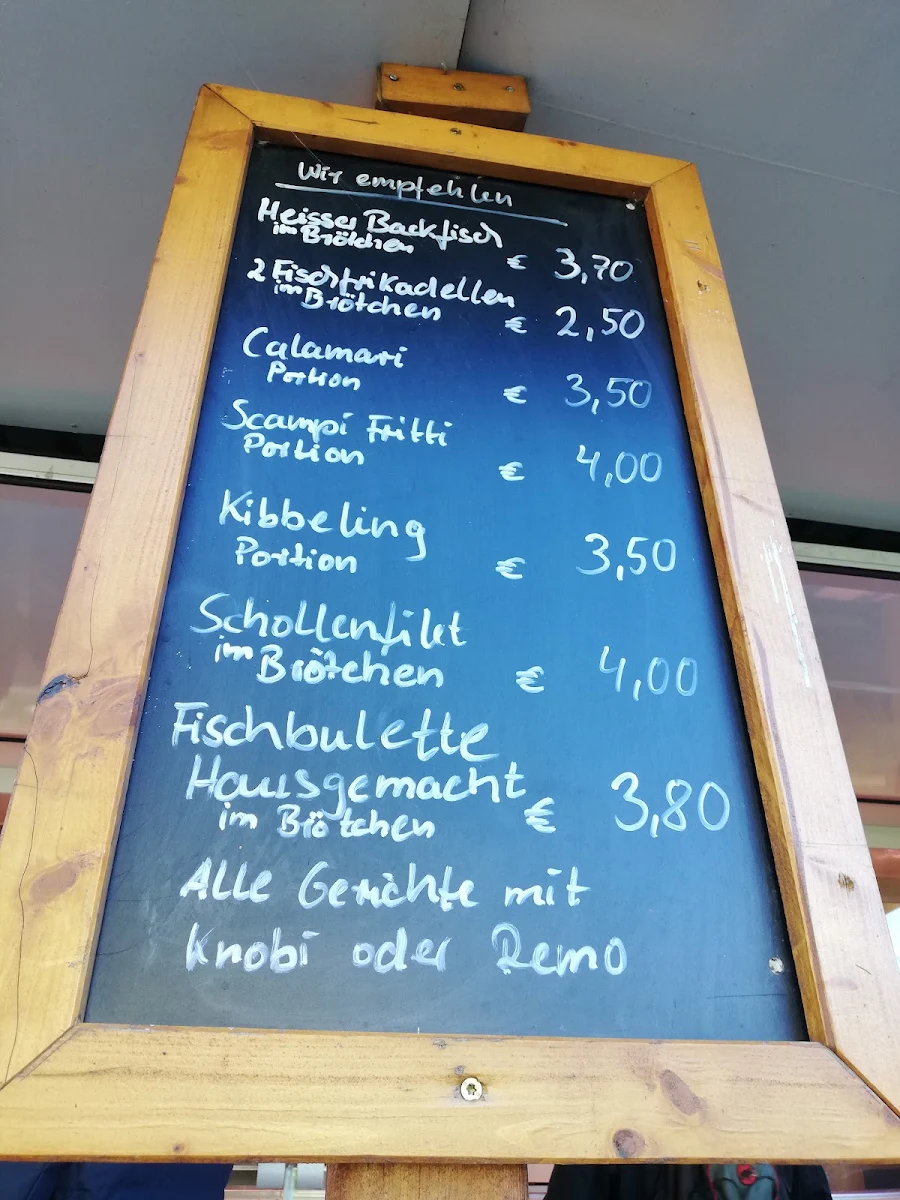 Wir empfehlen
Heisser Backfisch
im Brötchen € 3,70
2 Fischfrikadellen
im Brötchen € 2,50
Calamari
Portion € 3,50
Scampi Fritti
Portion € 4,00
Kibbeling
Portion € 3,50
Schollenfilet
im Brötchen € 4,00
Fischbulette
Hausgemacht
im Brötchen € 3,80
Alle Gerichte mit
Knobi oder Remo